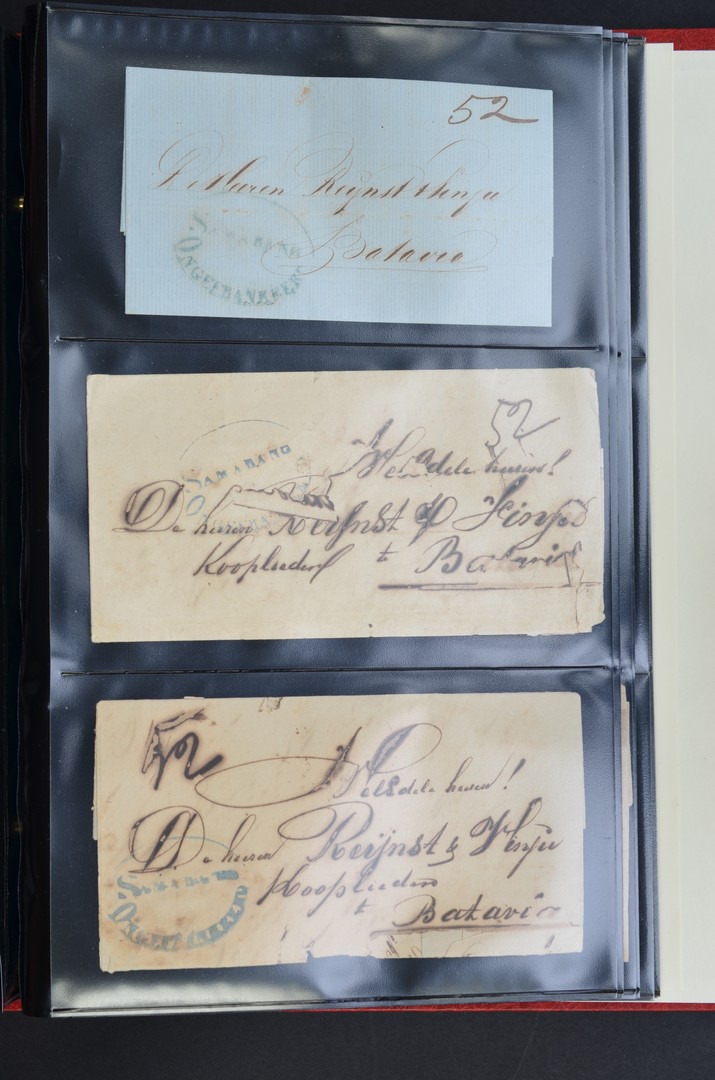 52
De Heeren Reijnst & Vinju
Batavia
SAMARANG
ONGEFRANKEERD
52
WelEdele heeren!
SAMARANG
De heeren Reijnst & Vinju
Kooplieden
te Batavia
52
WelEdele heeren!
De heeren Reijnst & Vinju
Kooplieden
te
Batavia
SAMARANG
ONGEFRANKEERD